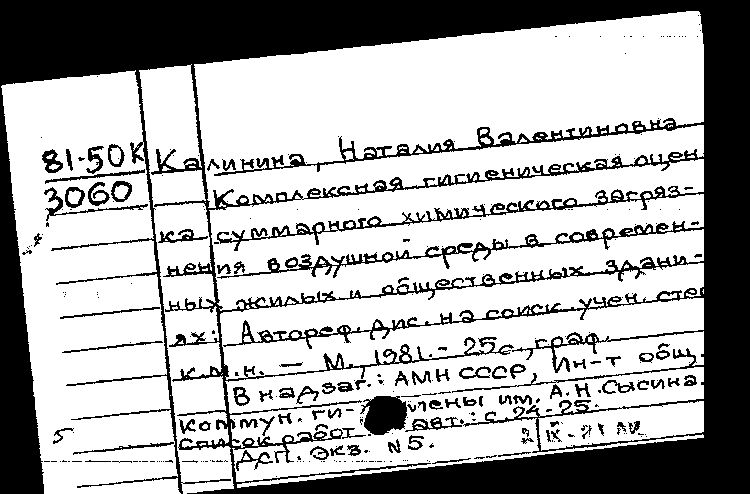 81-50К Калинина, Наталия Валентиновна
3060 Комплексная гигиеническая оцен
ка суммарного химического загряз-
нения воздушной среды в современ-
ных жилых и общественных здани-
ях: Автореф. дис. на соиск. учен. степ
к.м.н. — М., 1981. - 25с., граф.
В надзаг.: АМН СССР, Ин-т общ.
коммун. ги- им. А.Н. Сысина.
Список работ авт.: с. 24-25.
ДСП. Экз. N5.
5